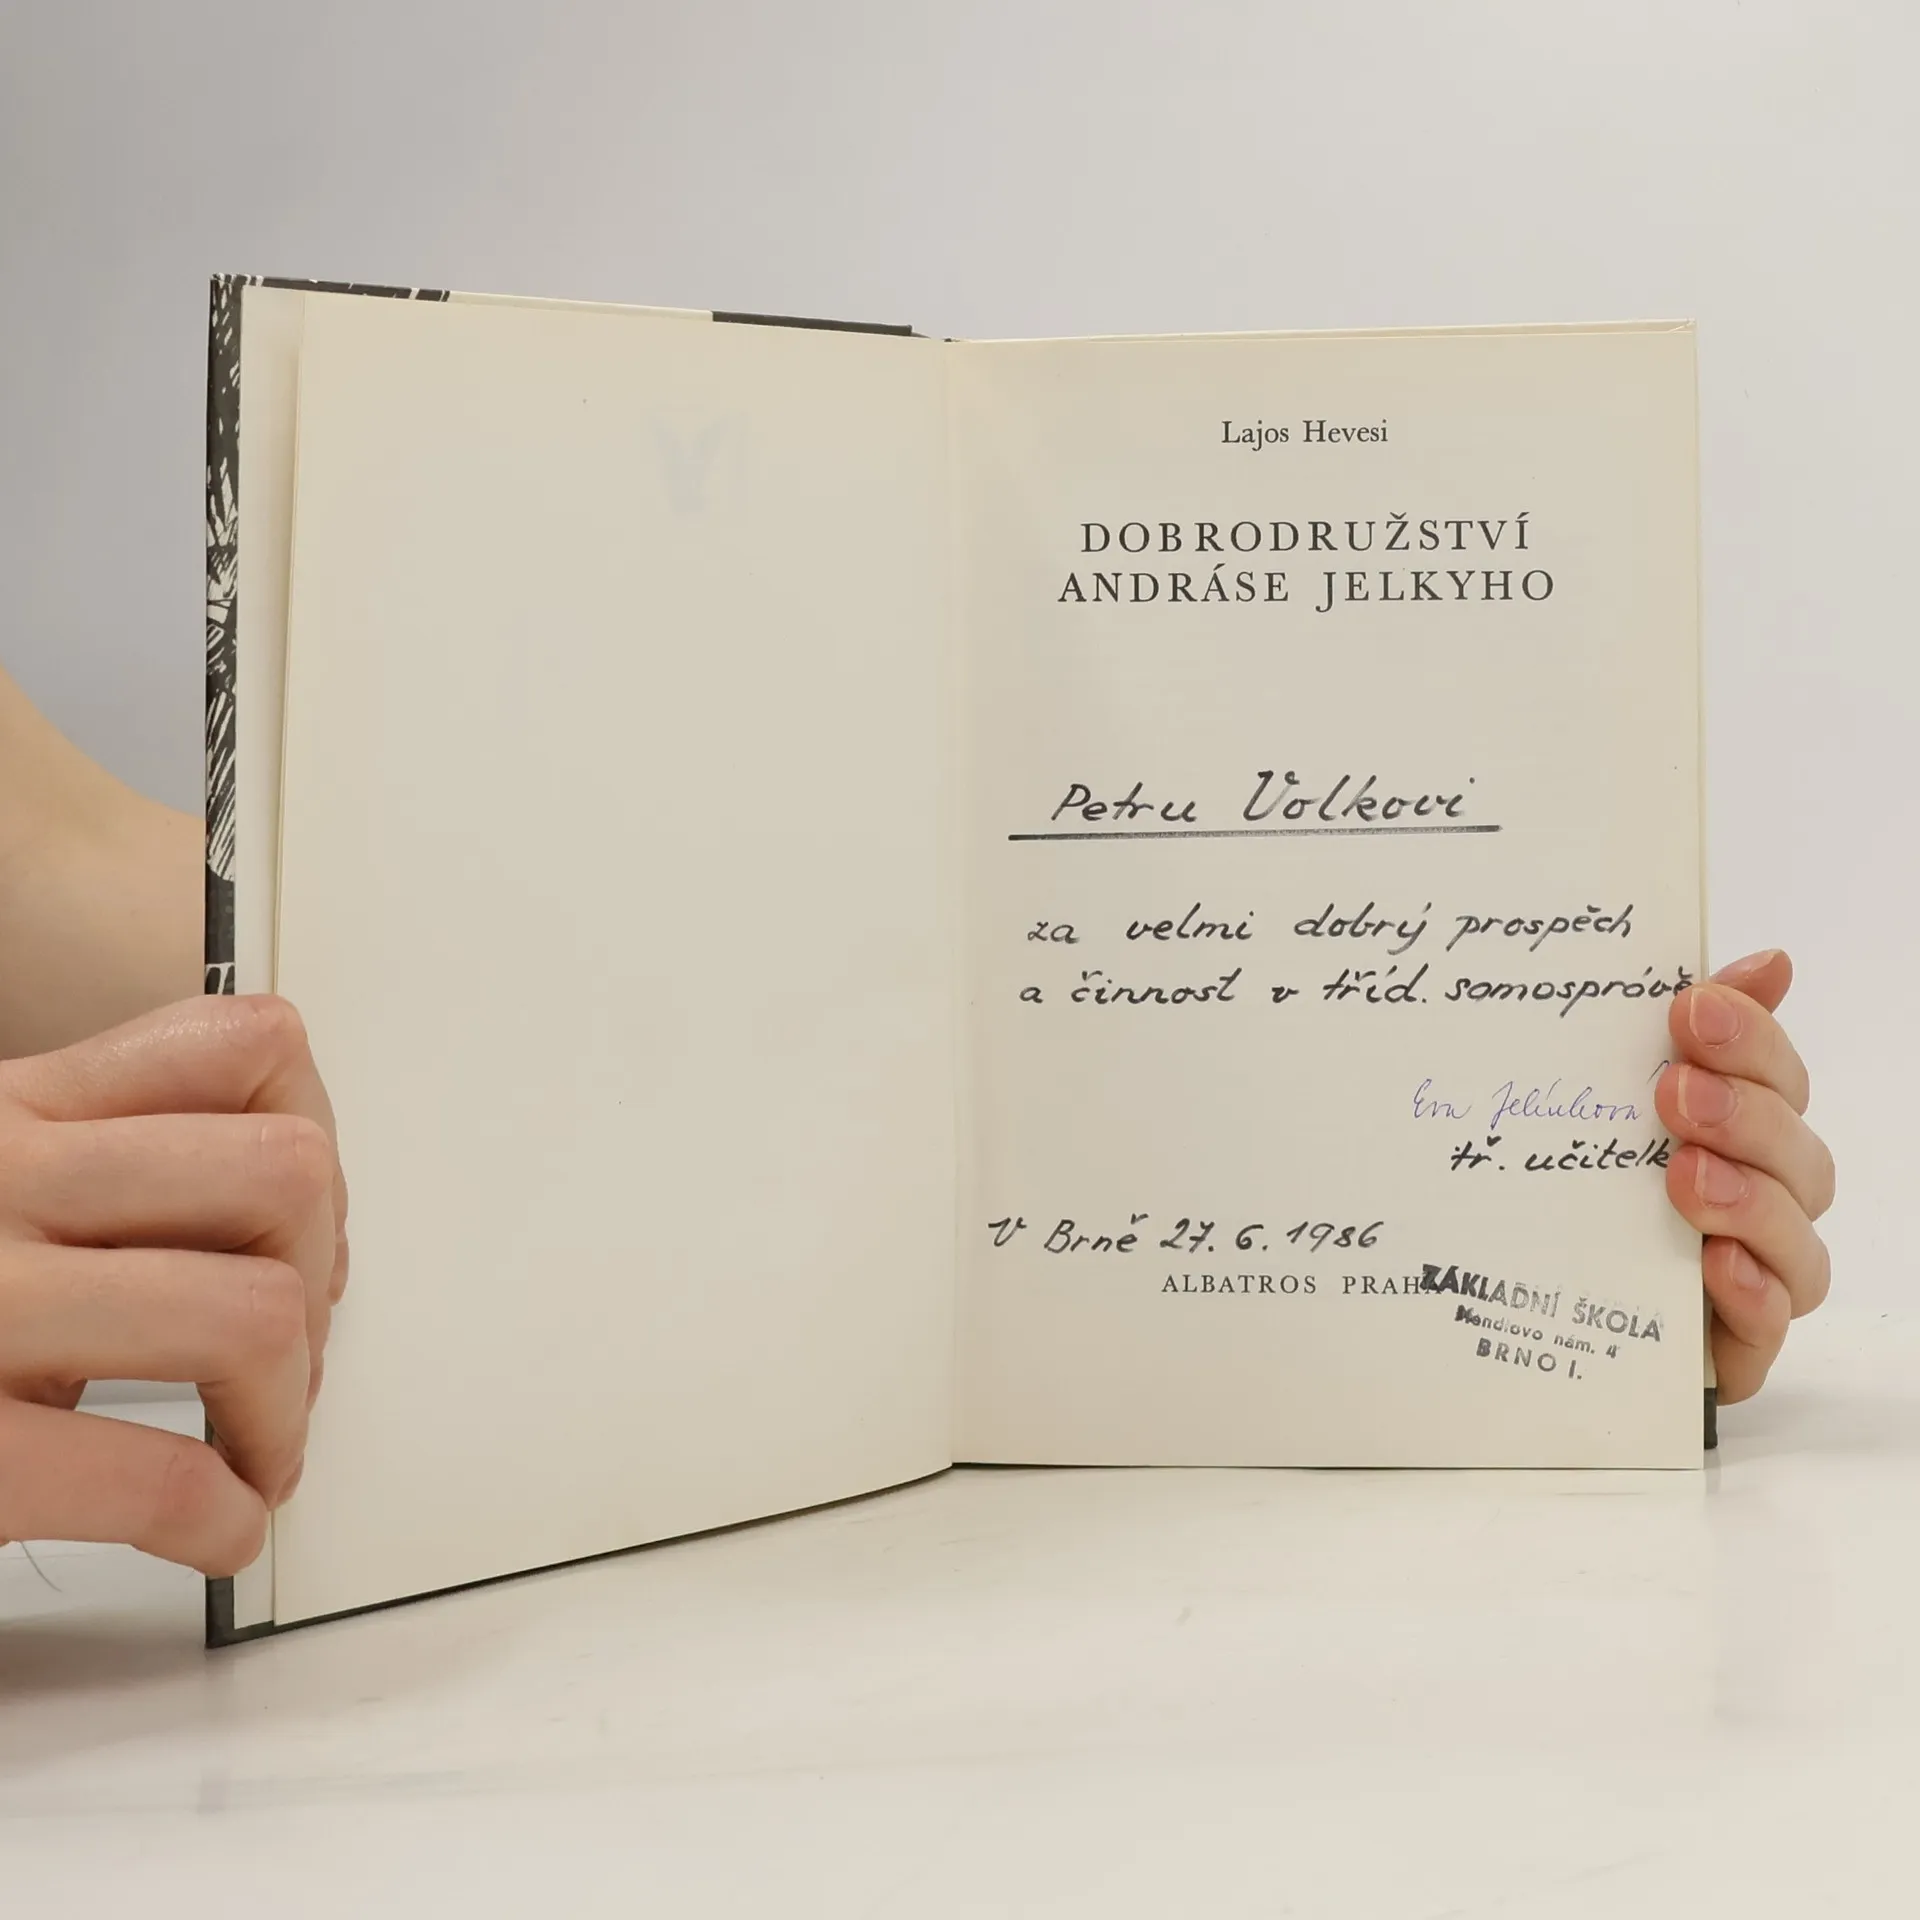 Lajos Hevesi
DOBRODRUŽSTVÍ
ANDRÁSE JELKYHO
Petru Volkovi
za velmi dobrý prospěch
a činnost v tříd. samosprávě
Eva Jelínková
tř. učitelk
v Brně 27. 6. 1986
ALBATROS PRAHA
ZÁKLADNÍ ŠKOLA
Mendlovo nám. 4
BRNO I.